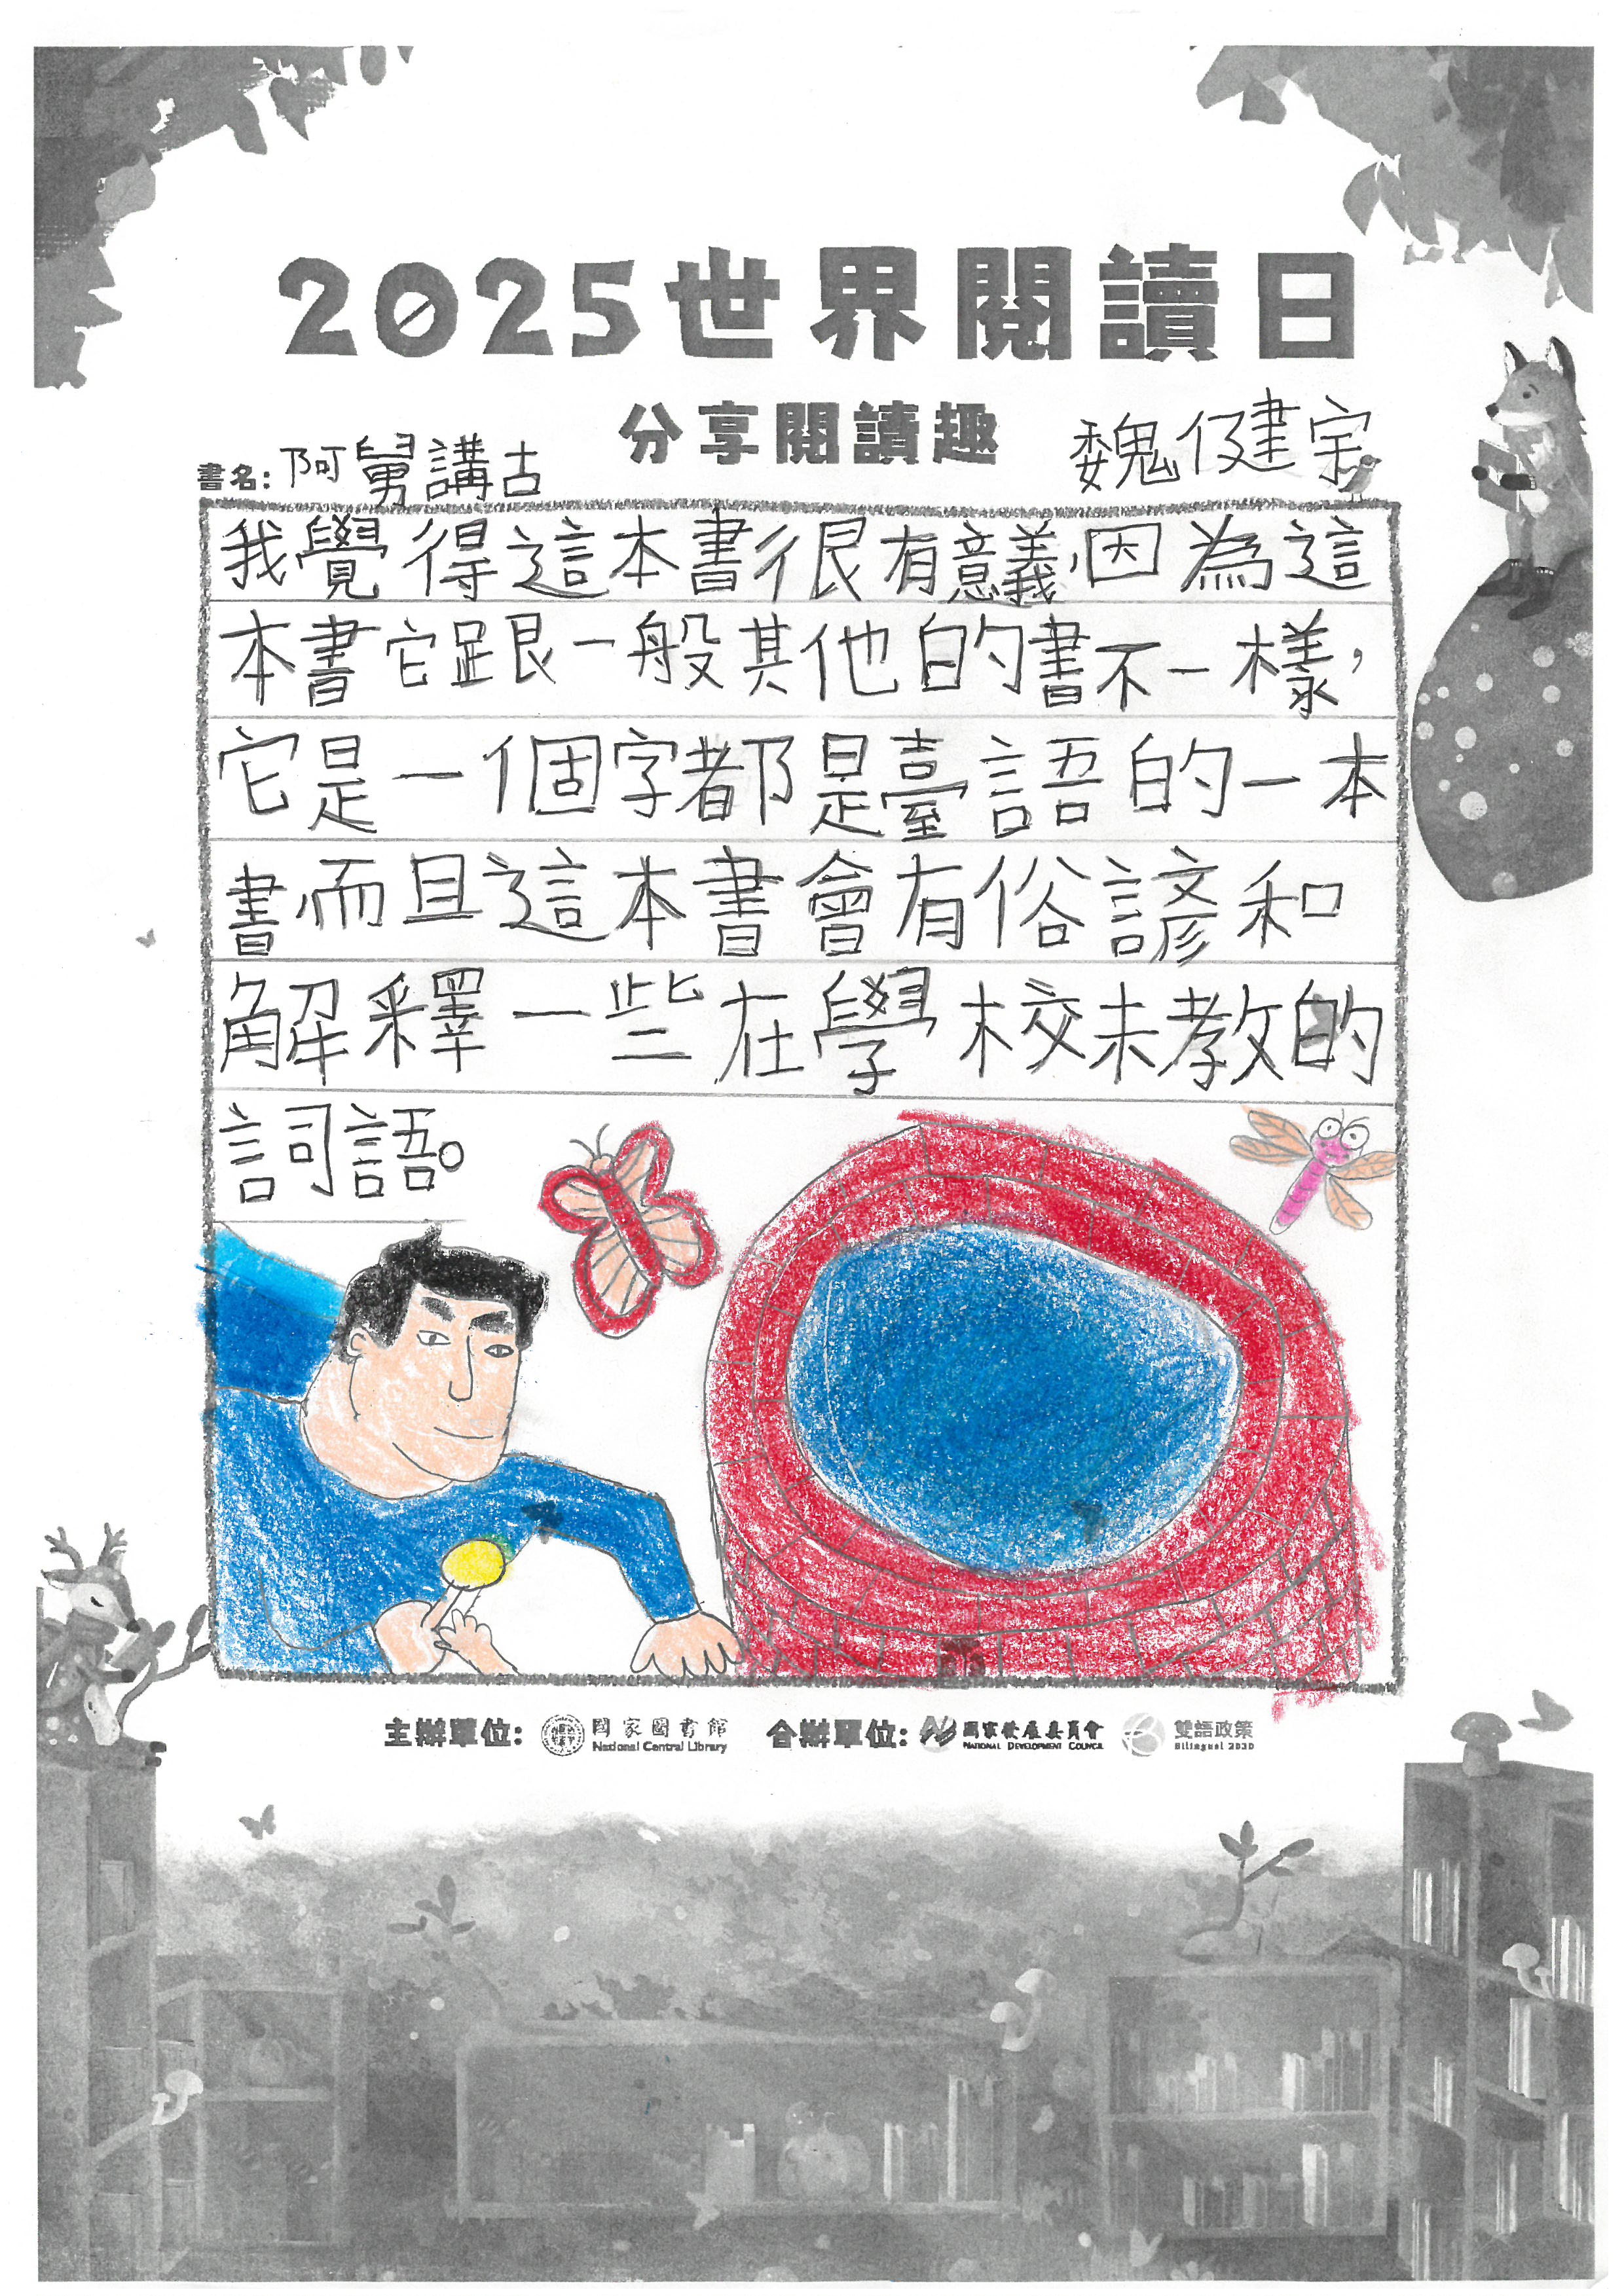 2025世界閱讀日
分享閱讀趣
魏健宇
書名：阿舅講古
我覺得這本書很有意義,因為這
本書它跟一般其他的書不一樣,
它是一個字都是臺語的一本
書,而且這本書會有俗諺和
解釋一些在學校未教的
詞語。
主辦單位：國家圖書館 National Central Library 合辦單位：國家發展委員會 NATIONAL DEVELOPMENT COUNCIL 雙語政策 Bilingual 2030